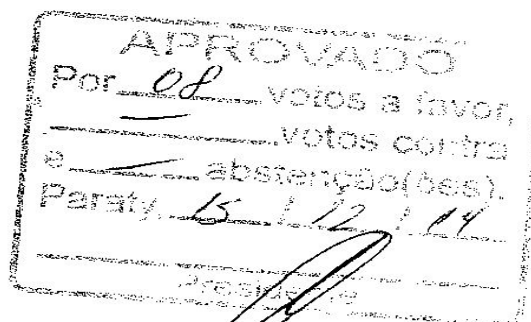 APROVADO
Por 08 votos a favor,
— votos contra
e — abstenção(ões).
Paraty, 15 / 12 / 14
Presidente